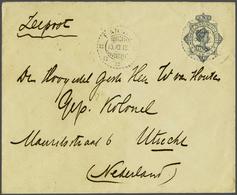 Zeepost
Den Hoogedel Gestr Heer W van Houten
Gep. Kolonel
Mauritsstraat 6 Utrecht
(Nederland)